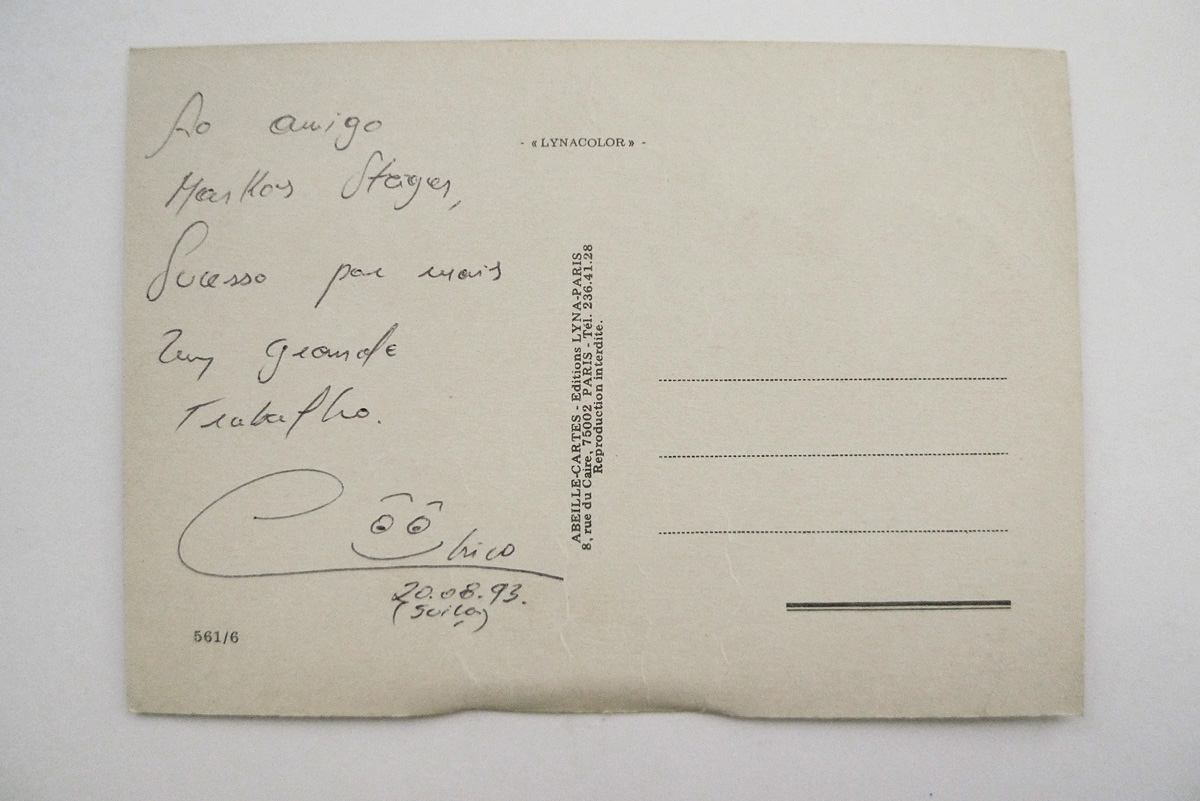 Ao amigo
Markos Staiger,
Sucesso por mais
Um grande
Trabalho.
Chico
20.08.93.
(Suiça)
561/6
- «LYNACOLOR» -
ABEILLE-CARTES - Editions LYNA-PARIS
8, rue du Caire, 75002 PARIS - Tél. 236.41.28
Reproduction interdite.